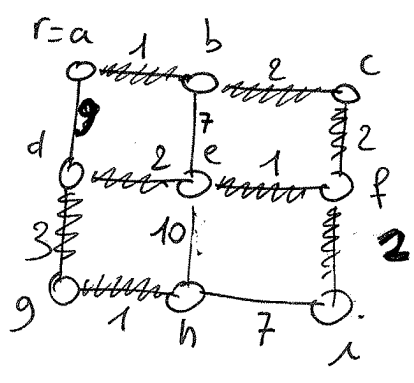 r=a 1 b 2 c
9 7 2
d 2 e 1 f
3 10 2
g 1 h 7 i